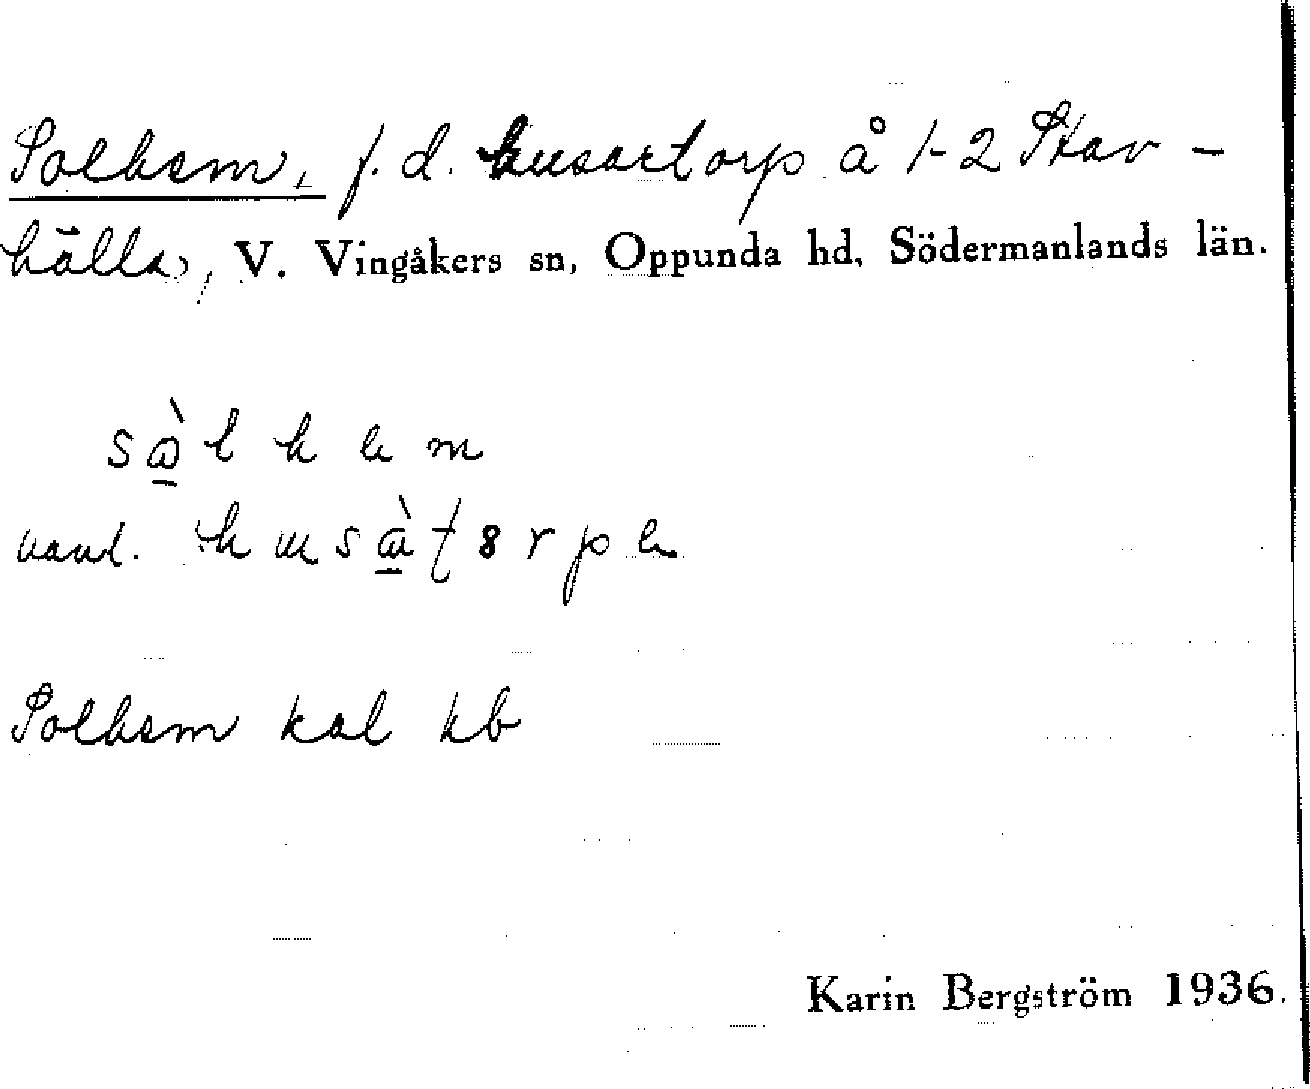 Solhem, f.d. husartorp å 1-2 Stav-
hälla, V. Vingåkers sn, Oppunda hd, Södermanlands län.
vanl.
Solhem kal kb
Karin Bergström 1936.